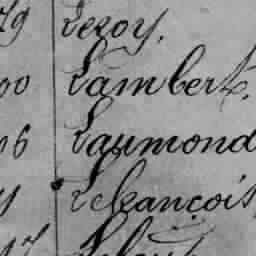 79 Leroy.
00 Lambert.
06 Laumond
Lefrançois